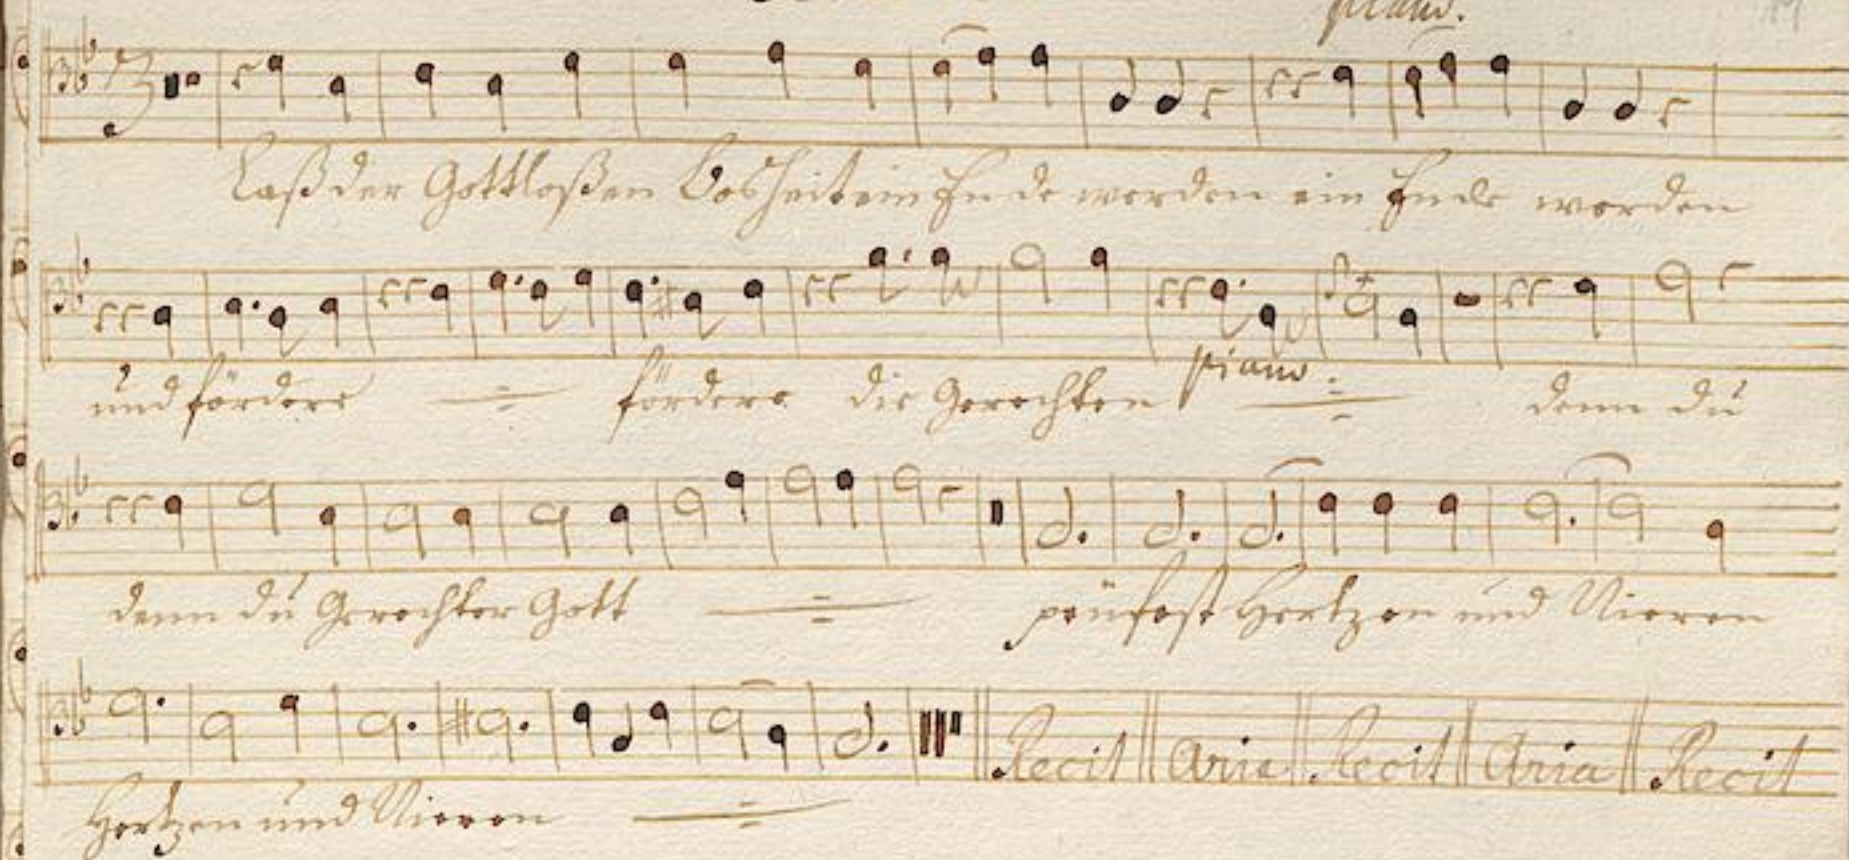 piano.
Laß der Gottloßen Bosheit ein Ende werden ein Ende werden
und fördere fördere die Gerechten piano. denn du
denn du Gerechter Gott prüfest Hertzen und Nieren
Recit Aria Recit Aria Recit
Hertzen und Nieren